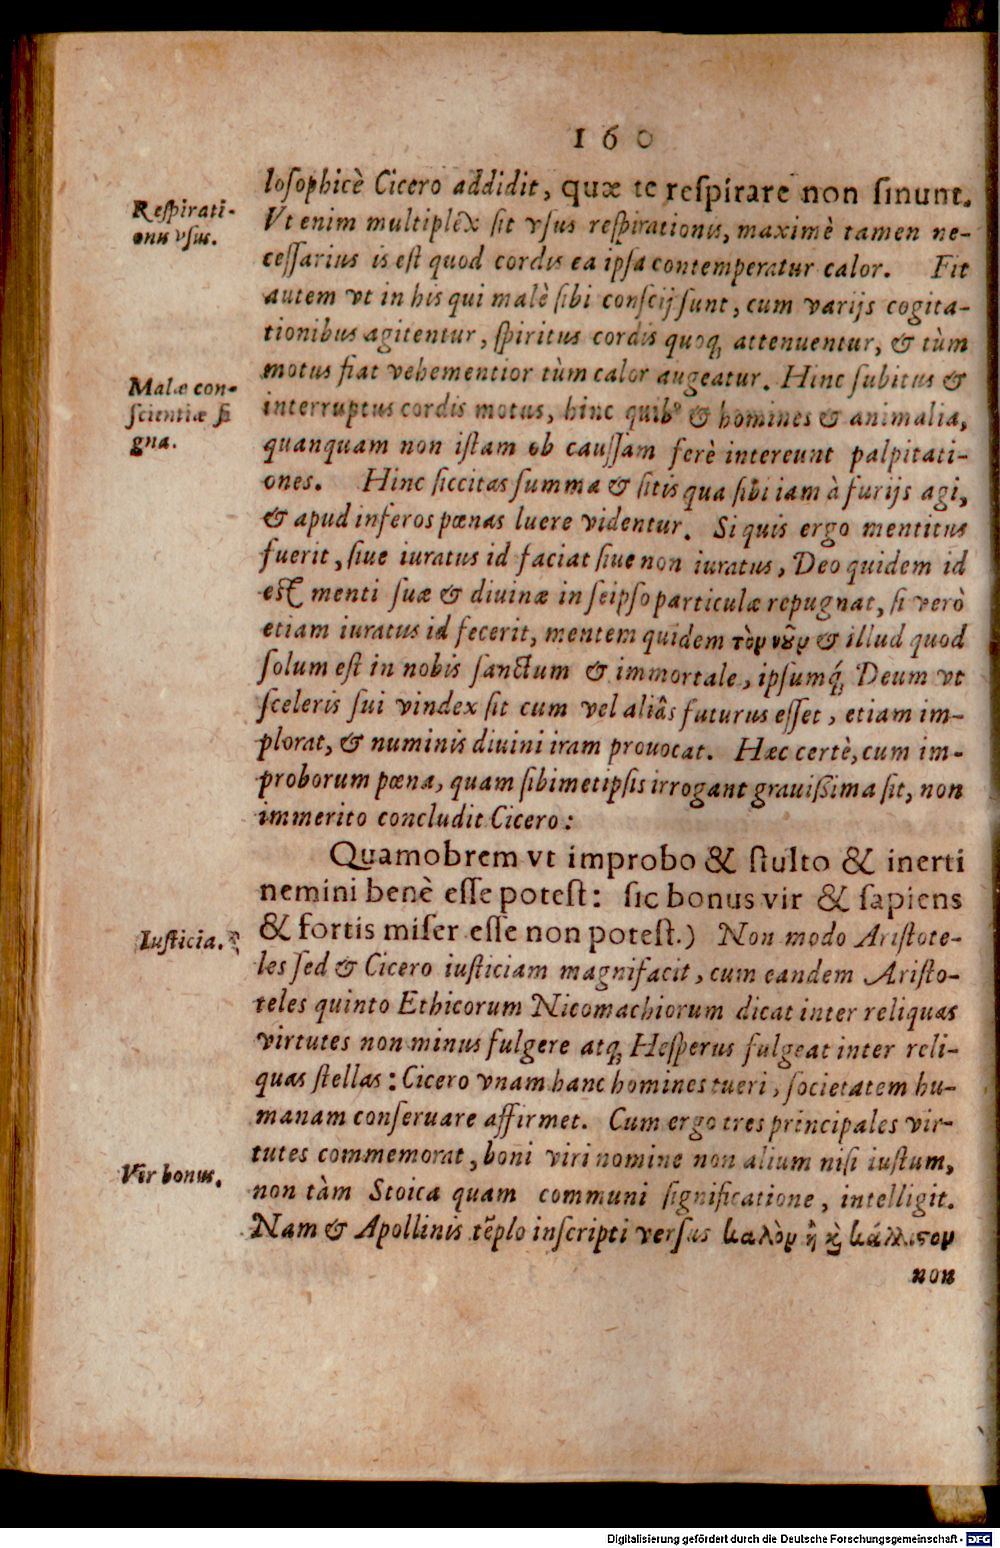 160
losophicè Cicero addidit, quæ te reſpirare non ſinunt.
Reſpirati-
onis vſus.
Vt enim multiplex ſit vſus reſpirationis, maximè tamen ne-
ceſſarius is eſt quod cordis ea ipſa contemperatur calor. Fit
autem vt in his qui malè ſibi conſcij ſunt, cum varijs cogita-
tionibus agitentur, ſpiritus cordis quoq; attenuentur, & tùm
motus fiat vehementior tùm calor augeatur. Hinc ſubitus &
Malæ con-
ſcientiæ ſi
gna.
interruptus cordis motus, hinc quibꝰ & homines & animalia,
quanquam non iſtam ob cauſſam ferè intereunt palpitati-
ones. Hinc ſiccitas ſumma & ſitis qua ſibi iam à furijs agi,
& apud inferos pœnas luere videntur. Si quis ergo mentitus
fuerit, ſiue iuratus id faciat ſiue non iuratus, Deo quidem id
eſt menti ſuæ & diuinæ in ſeipſo particulæ repugnat, ſi verò
etiam iuratus id fecerit, mentem quidem τὸν νοῦν & illud quod
ſolum eſt in nobis ſanctum & immortale, ipſumq́; Deum vt
ſceleris ſui vindex ſit cum vel aliâs futurus eſſet, etiam im-
plorat, & numinis diuini iram prouocat. Hæc certè, cum im-
proborum pœna, quam ſibimetipſis irrogant grauiſſima ſit, non
immerito concludit Cicero:
Quamobrem vt improbo & ſtulto & inerti
nemini benè eſſe poteſt: ſic bonus vir & ſapiens
& fortis miſer eſſe non poteſt.) Non modo Ariſtote-
Iuſticia.
les ſed & Cicero iuſticiam magnifacit, cum eandem Ariſto-
teles quinto Ethicorum Nicomachiorum dicat inter reliquas
virtutes non minus fulgere atq; Heſperus fulgeat inter reli-
quas ſtellas: Cicero vnam hanc homines tueri, ſocietatem hu-
manam conſeruare affirmet. Cum ergo tres principales vir-
tutes commemorat, boni viri nomine non alium niſi iuſtum,
Vir bonus.
non tàm Stoica quam communi ſignificatione, intelligit.
Nam & Apollinis tẽplo inſcripti verſus καλὸν ἢ καὶ κάλλιστον
non
Digitalisierung gefördert durch die Deutsche Forschungsgemeinschaft - DFG